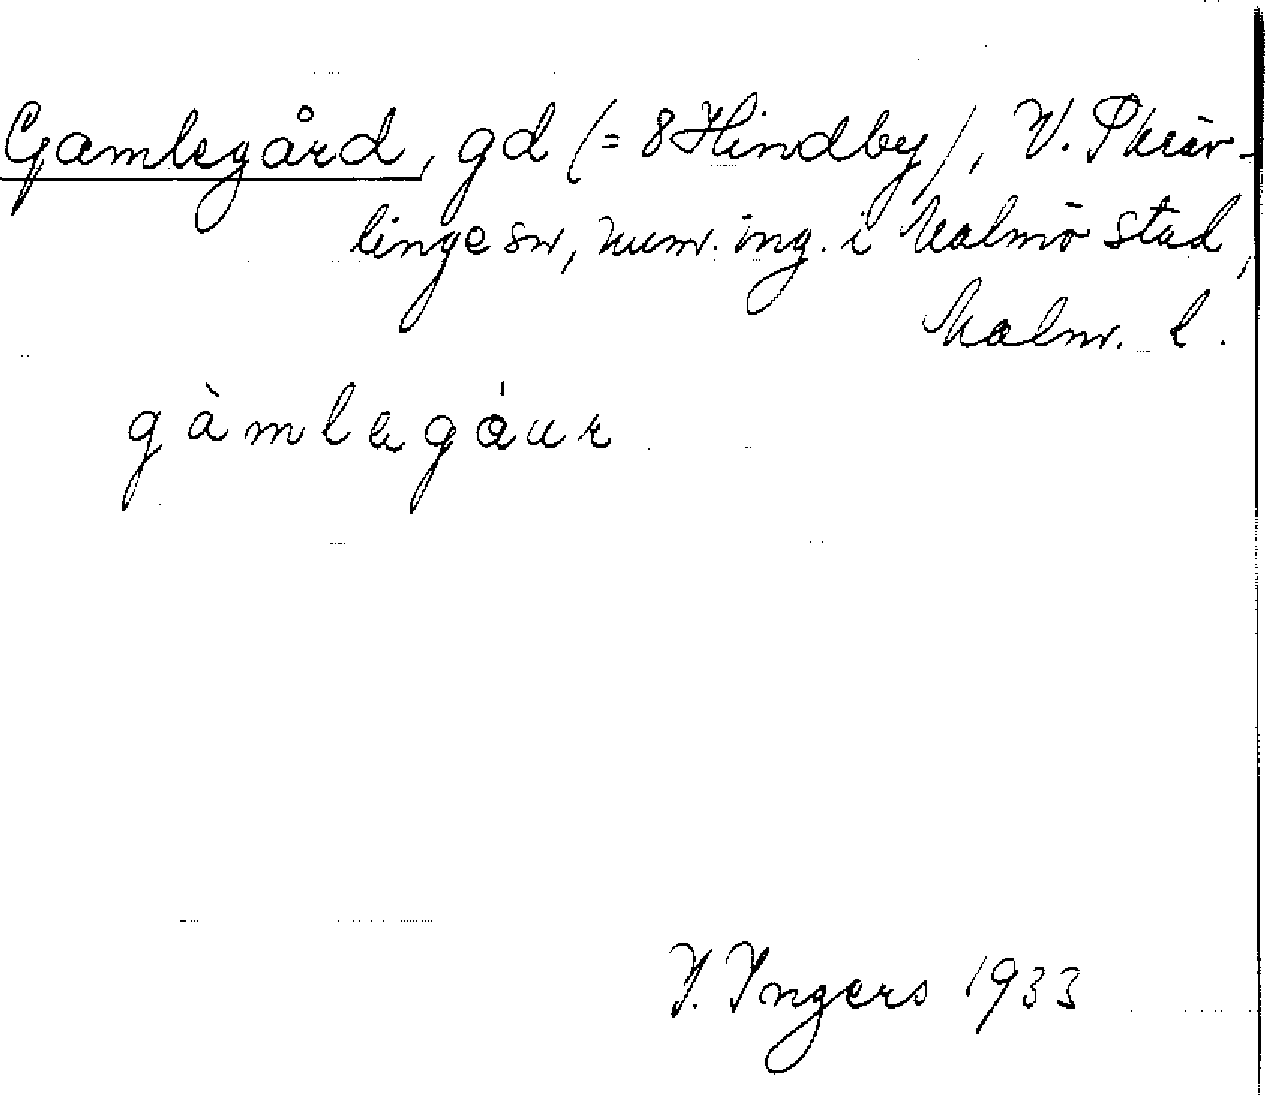 Gamlegård, gd (= 8 Hindby), V. Skräv-
linge sn, num. ing. i Malmö stad,
Malm. l.
gàmlagáur
I. Ingers 1933